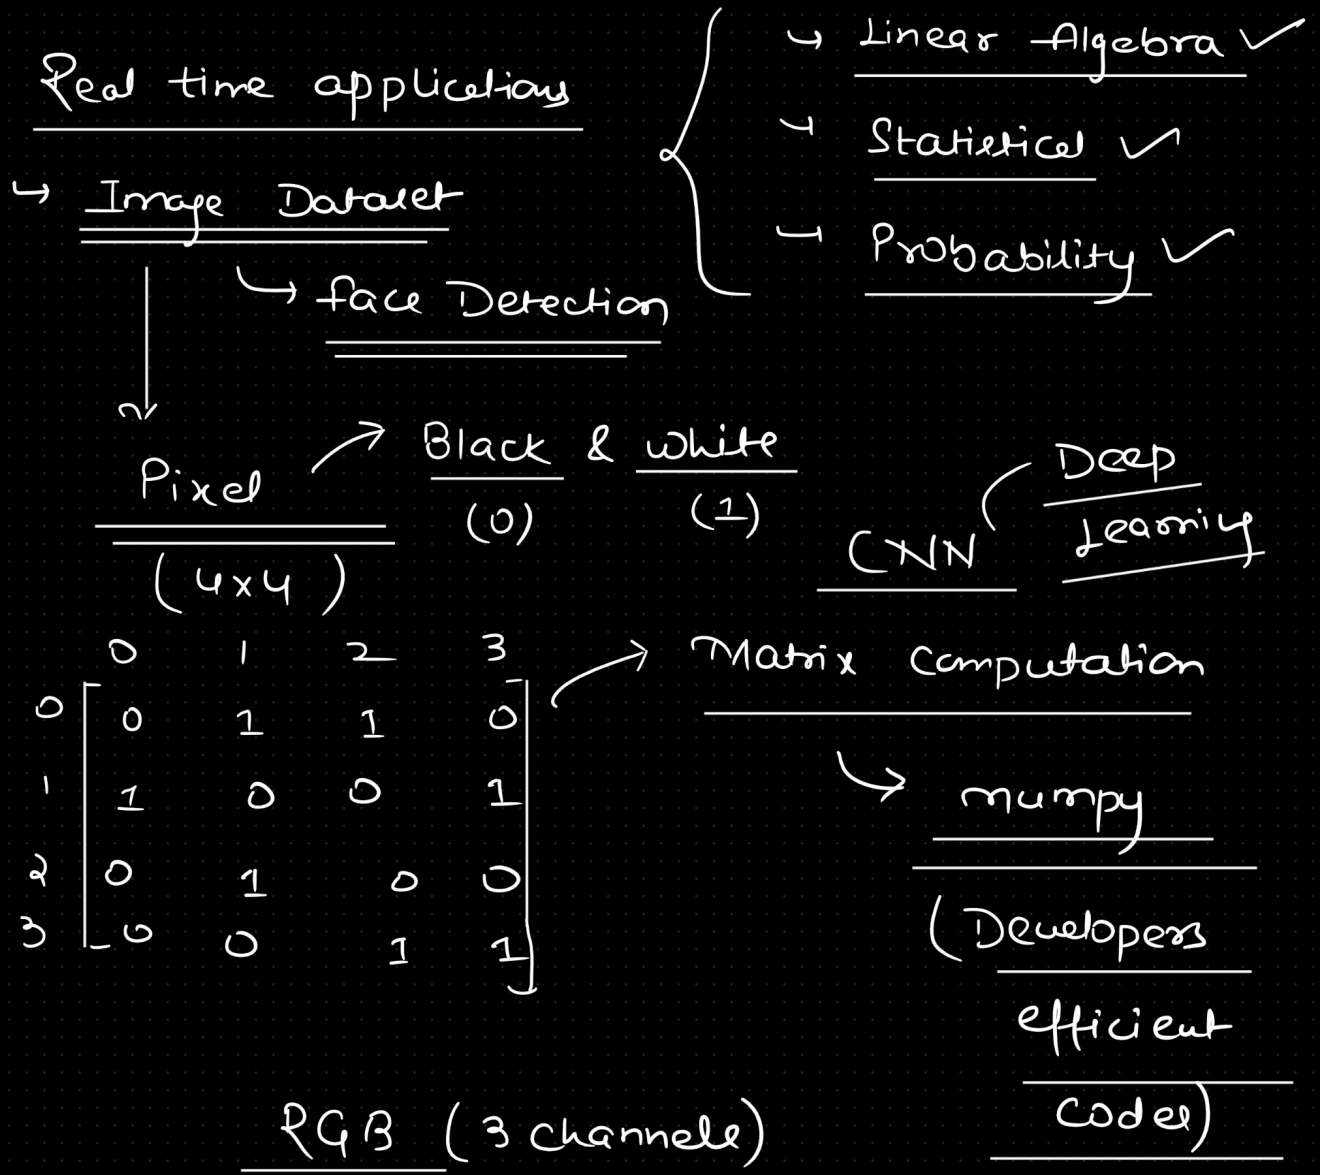 Real time applications
↳ Image Dataset
↳ face Detection
↳ Linear Algebra ✓
↳ Statistical ✓
↳ Probability ✓
Pixel
(4x4)
Black & white
(0) (1)
CNN
Deep
Learning
0 1 2 3
0 0 1 1 0
1 1 0 0 1
2 0 1 0 0
3 0 0 1 1
Matrix computation
numpy
(Developers
efficient
codes)
RGB (3 channels)